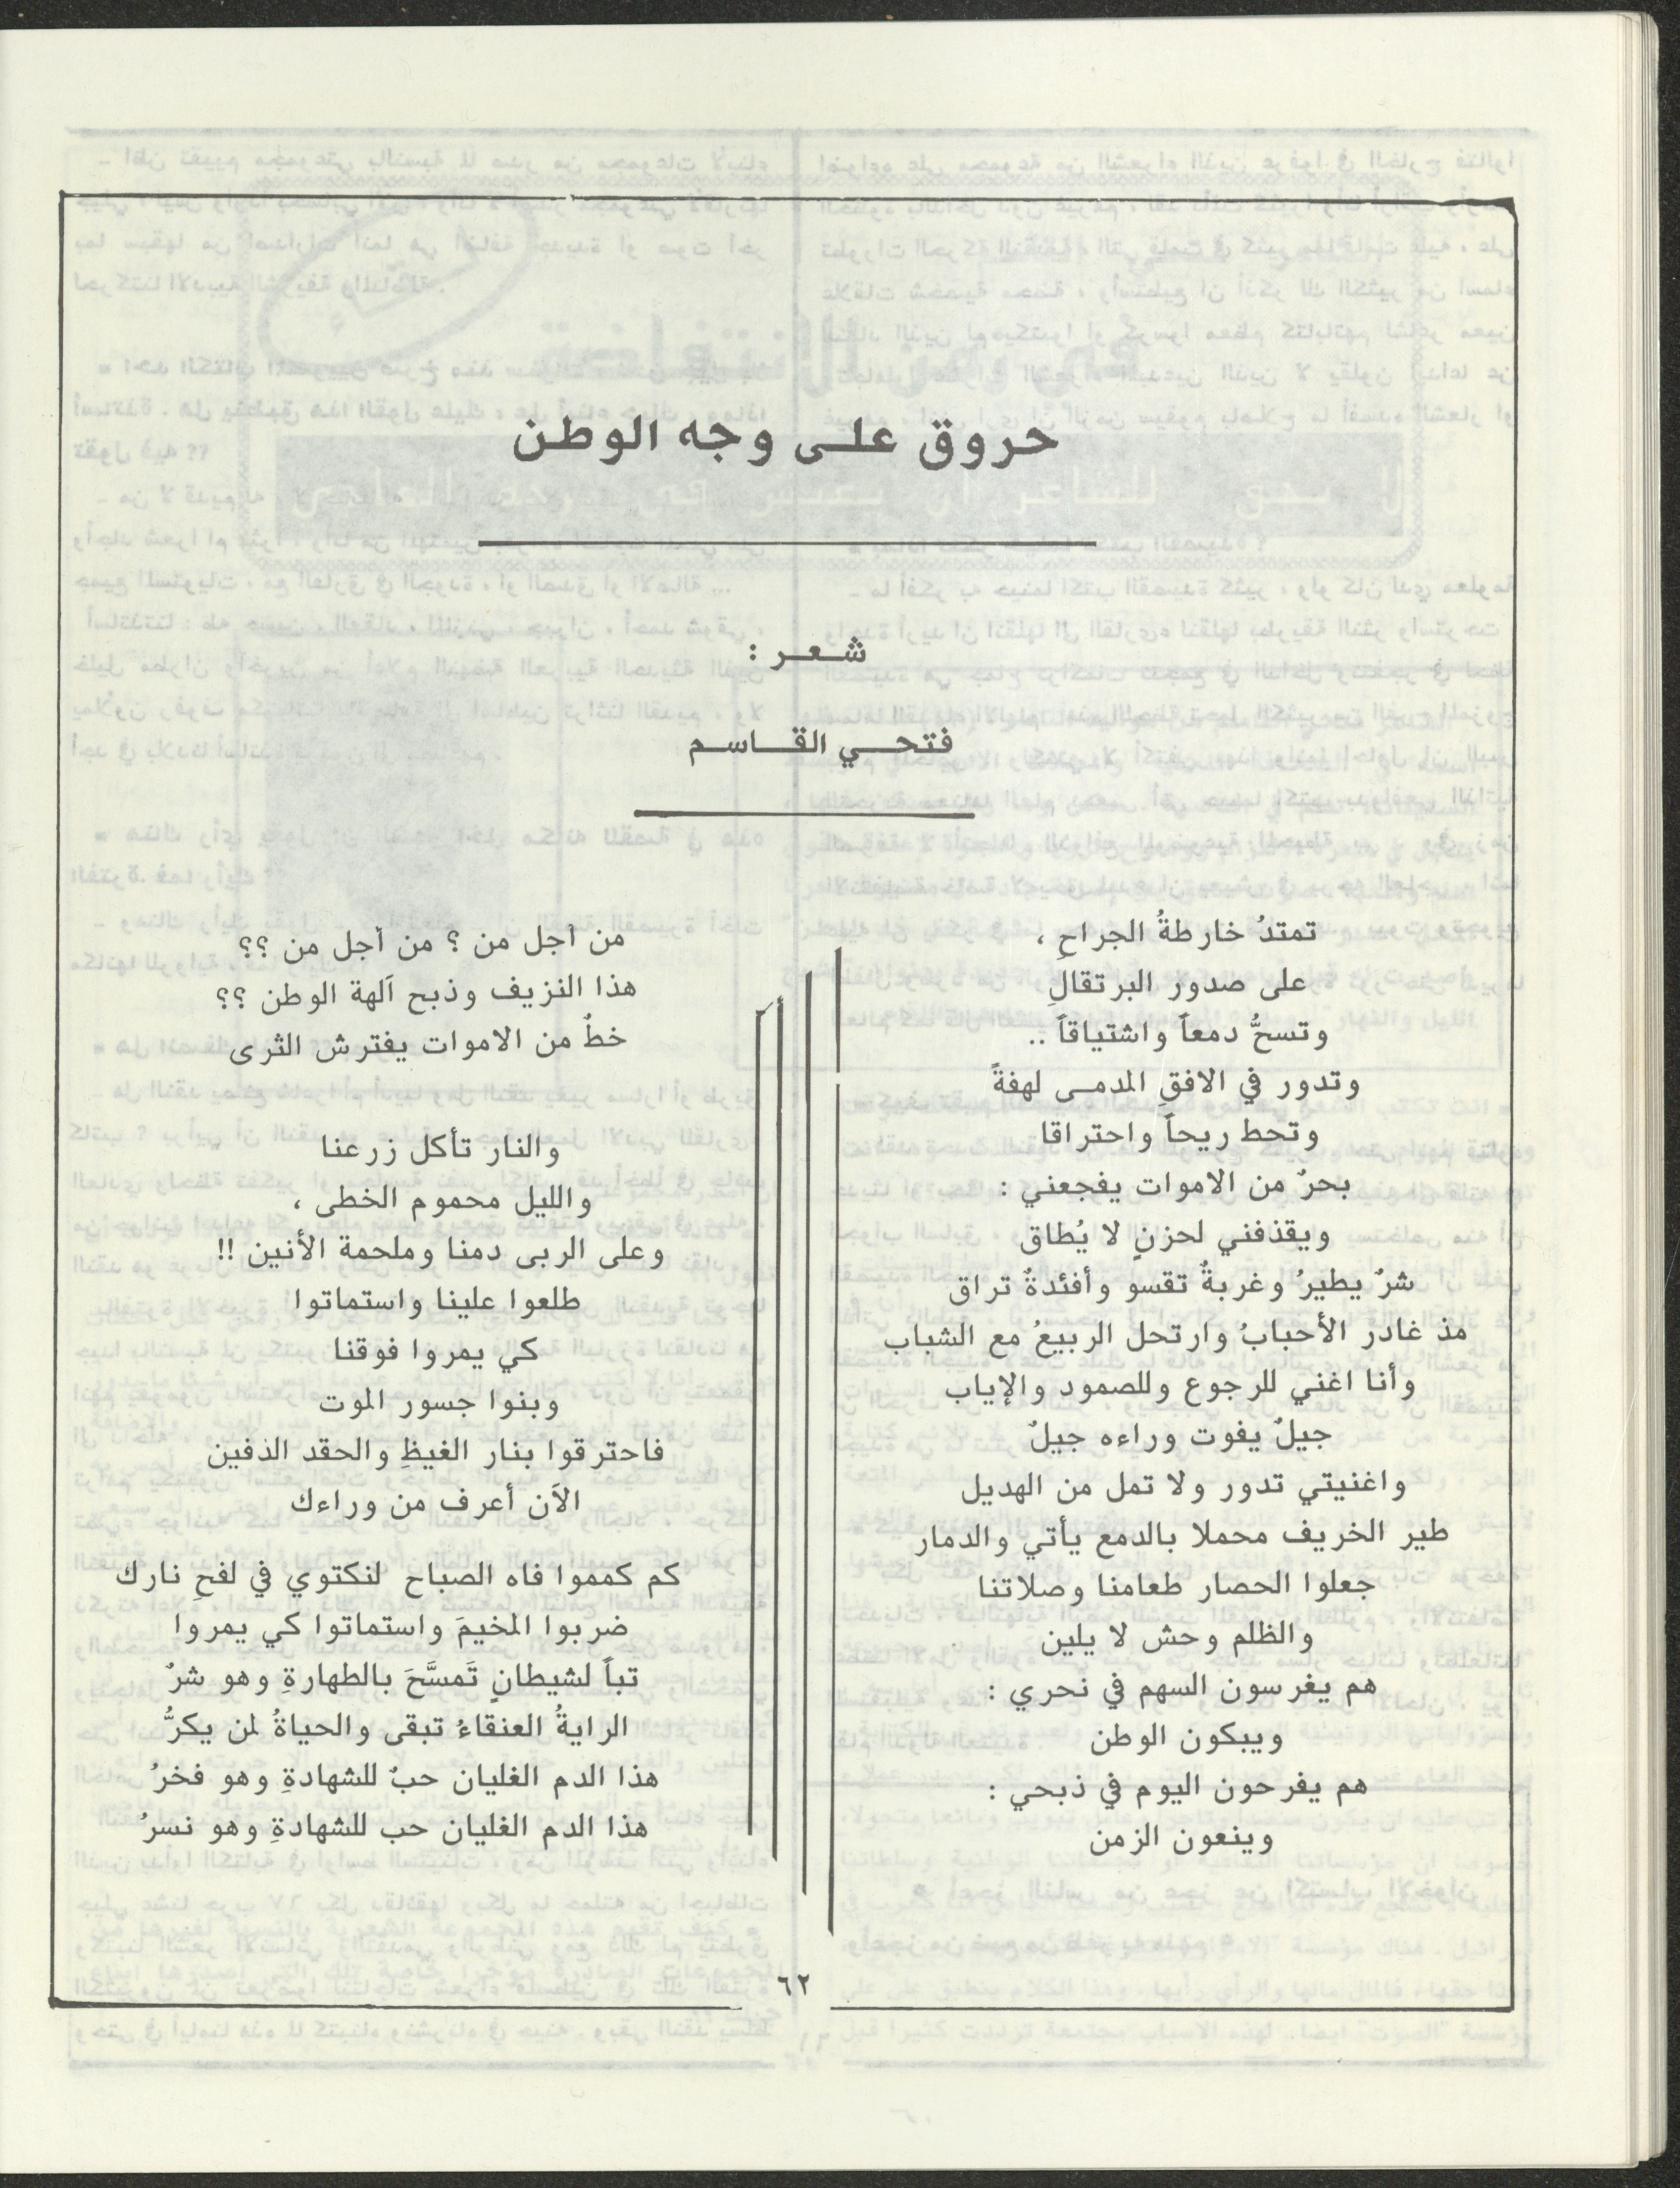 حروق على وجه الوطن
شعر :
فتحي القاسم
تمتدُ خارطةُ الجراحِ ،
على صدور البرتقالِ
وتسحُّ دمعاً واشتياقاً ..
وتدور في الافقِ المدمى لهفةً
وتحط ريحاً واحتراقا
بحرٌ من الاموات يفجعني :
ويقذفني لحزنٍ لا يُطاق
شرٌ يطيرُ وغربةٌ تقسو وأفئدةٌ تراق
مذ غادر الأحبابُ وارتحل الربيعُ مع الشباب
وأنا اغني للرجوع وللصمود والإياب
جيلٌ يفوت وراءه جيلٌ
واغنيتي تدور ولا تمل من الهديل
طير الخريف محملا بالدمع يأتي والدمار
جعلوا الحصار طعامنا وصلاتنا
والظلم وحش لا يلين
هم يغرسون السهم في نحري :
ويبكون الوطن
هم يفرحون اليوم في ذبحي :
وينعون الزمن
من أجل من ؟ من أجل من ؟؟
هذا النزيف وذبح آلهة الوطن ؟؟
خطٌ من الاموات يفترش الثرى
والنار تأكل زرعنا
والليل محموم الخطى ،
وعلى الربى دمنا وملحمة الأنين !!
طلعوا علينا واستماتوا
كي يمروا فوقنا
وبنوا جسور الموت
فاحترقوا بنار الغيظِ والحقد الدفين
الآن أعرف من وراءك
كم كمموا فاه الصباح لنكتوي في لفحِ نارك
ضربوا المخيمَ واستماتوا كي يمروا
تباً لشيطانٍ تَمسَّحَ بالطهارةِ وهو شرٌ
الرايةُ العنقاءُ تبقى والحياةُ لمن يكرُّ
هذا الدم الغليان حبٌ للشهادةِ وهو فخرُ
هذا الدم الغليان حب للشهادةِ وهو نسرُ
٦٢